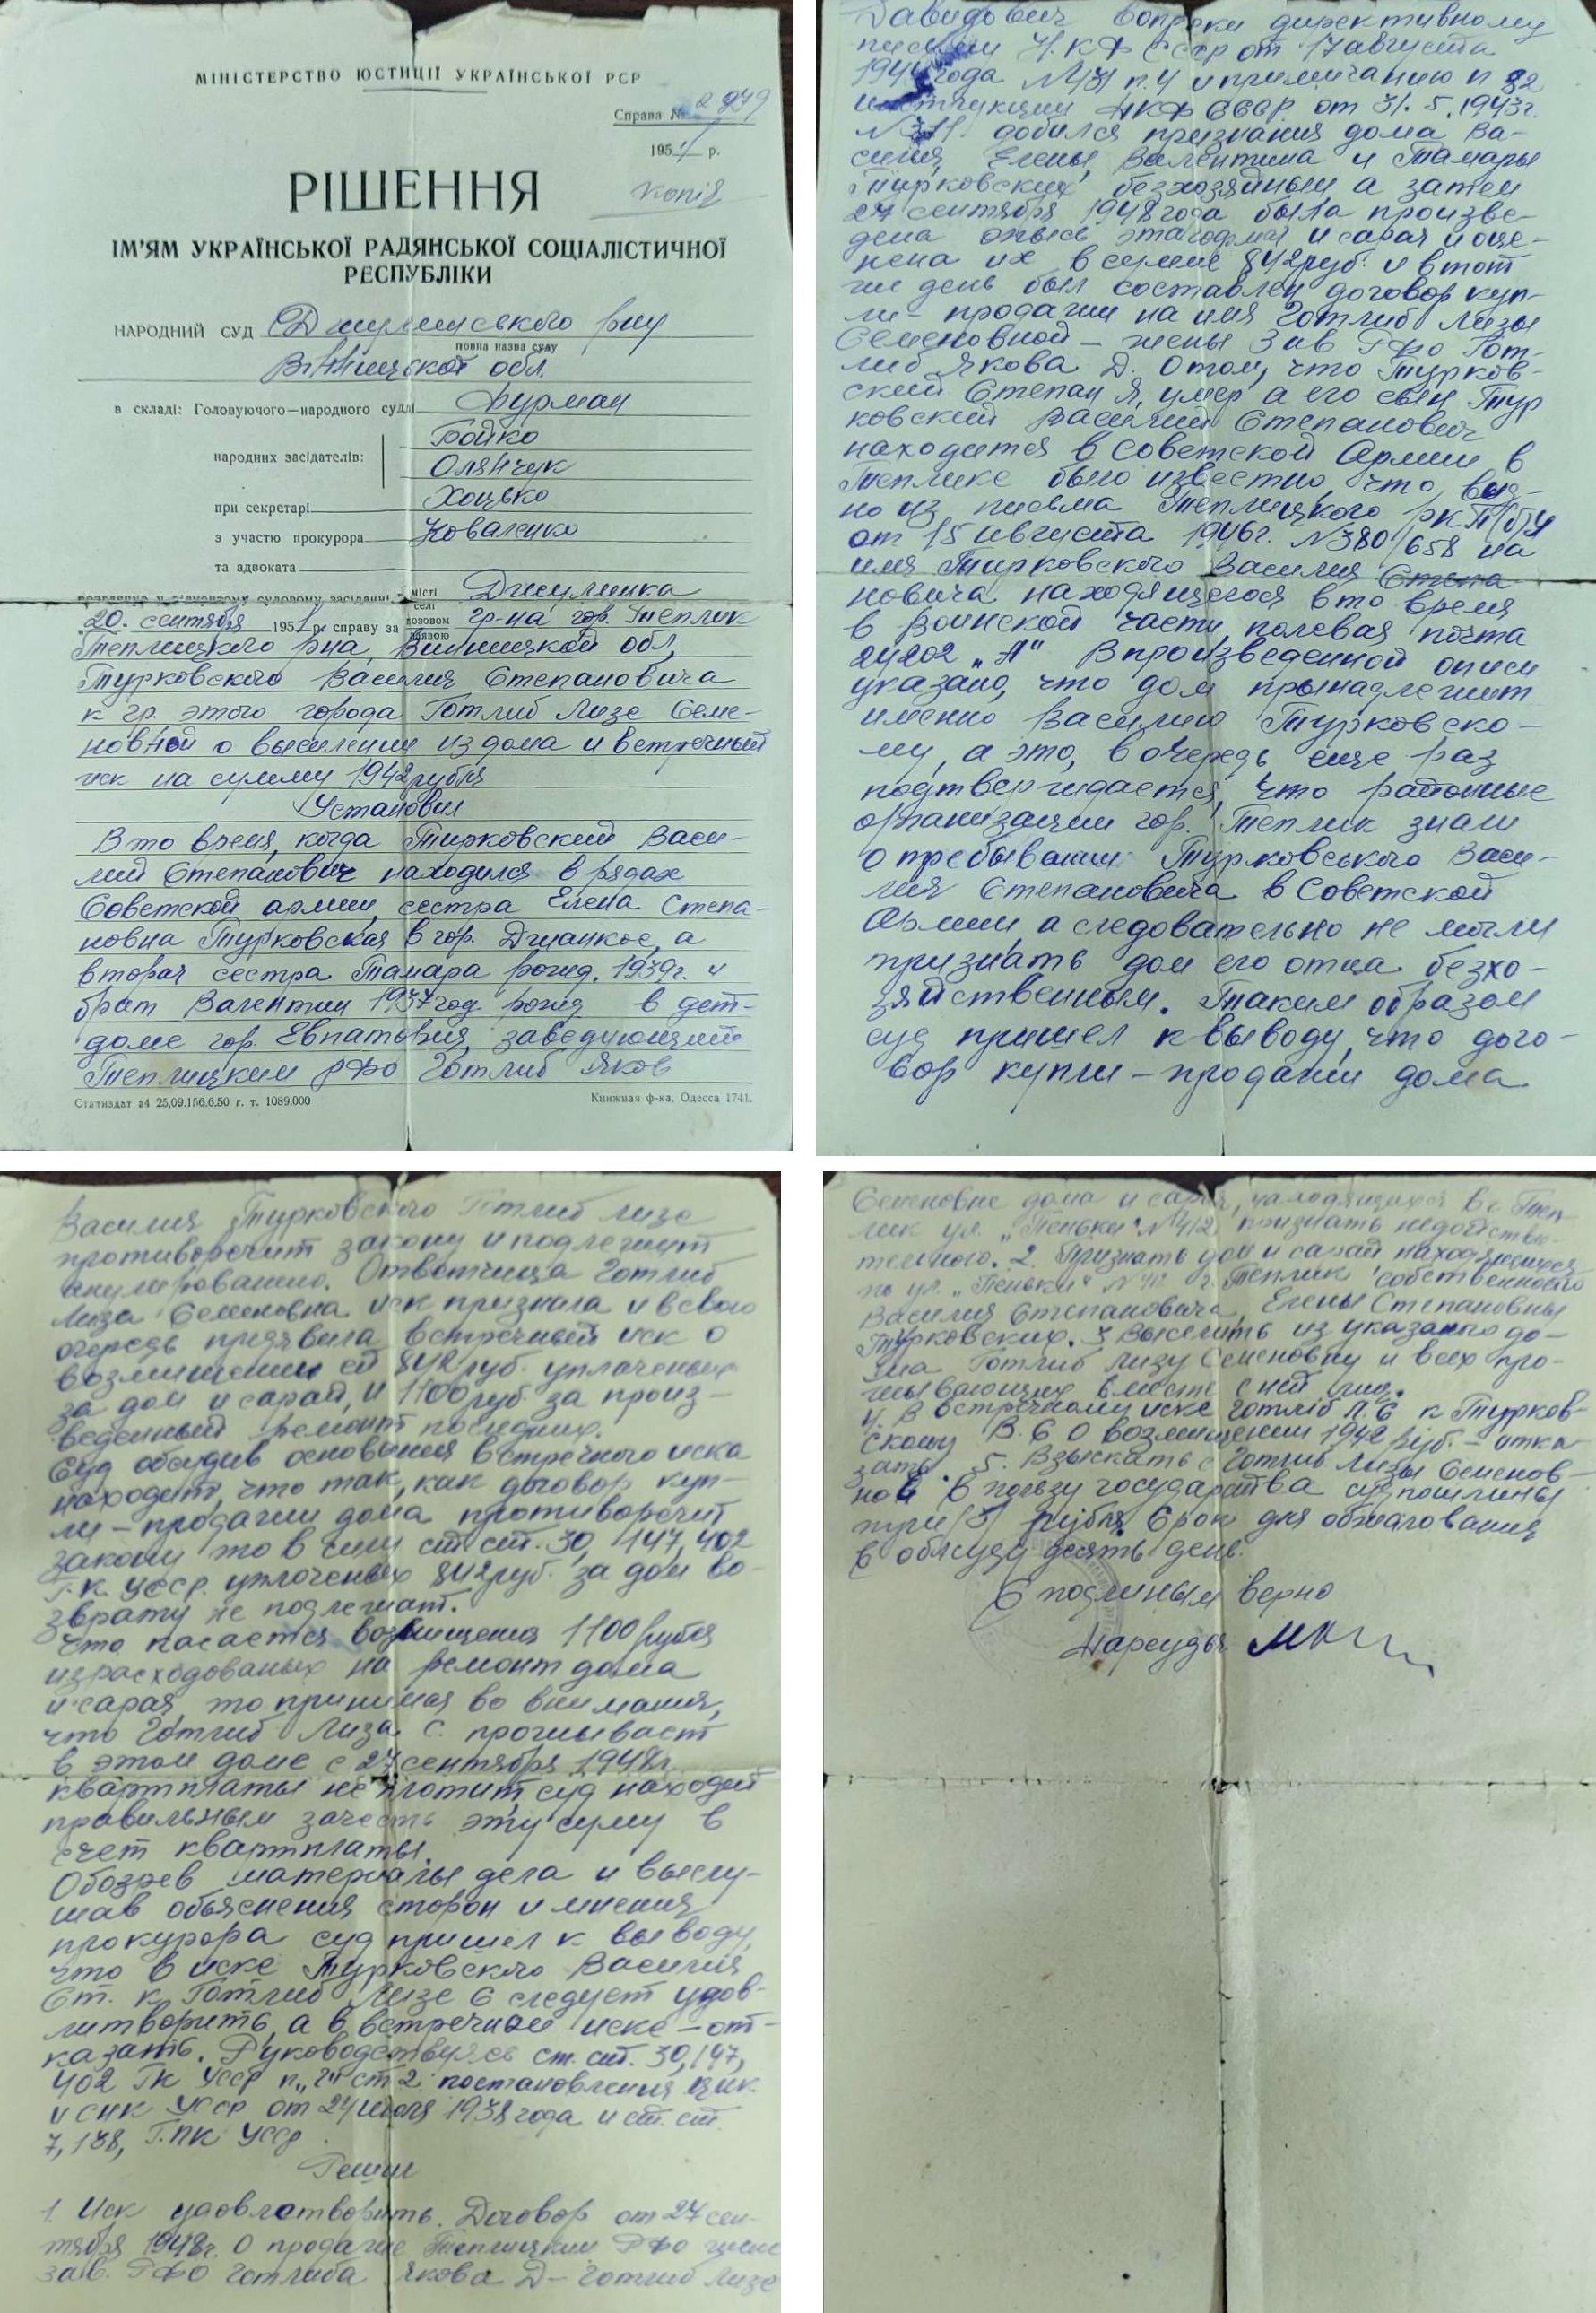 МІНІСТЕРСТВО ЮСТИЦІЇ УКРАЇНСЬКОЇ РСР
Справа № 2 979
1951 р.
РІШЕННЯ
копія
ІМ'ЯМ УКРАЇНСЬКОЇ РАДЯНСЬКОЇ СОЦІАЛІСТИЧНОЇ
РЕСПУБЛІКИ
НАРОДНИЙ СУД Джулинського р-ну
повна назва суду
Вінницької обл.
в складі: Головуючого—народного судді Фурман
Бойко
народних засідателів:
Олянчук
при секретарі Хоцько
з участю прокурора Коваленко
та адвоката
розглянув у відкритому судовому засіданні в місті Джулинка
селі
20. сентября 1951 р. справу за позовом гр-на гор. Теплик
заявою
Теплицкого р-на, Винницкой обл,
Турковского Василия Степановича
к гр. этого города Готлиб Лизе Семе-
новной о выселении из дома и встречный
иск на сумму 1942 рубля
Установил
В то время, когда Турковский Васи-
лий Степанович находился в рядах
Советской армии, сестра Елена Степа-
новна Турковская в гор. Джанкое, а
вторая сестра Тамара рожд. 1939г. и
брат Валентин 1937 год. рожд в дет-
доме гор. Евпатория, заведующий
Теплицким РФО Готлиб Яков
Статиздат з4 25,09.156.6.50 г. т. 1089.000
Книжная ф-ка, Одесса 1741.
Давидович вопреки директивному
письму Н.КФ СССР от 17 августа
1944 года № 431 п.4 и примичанию п 82
инструкции НКФ СССР от 31.5.1943г.
добился признания дома Ва-
силия, Елены, Валентина и Тамары
Турковских безхозяйным а затем
27 сентября 1948 года была произве-
дена опись этого дома и сарая и оце-
нена их в сумме 842 руб. и в тот
же день был составлен договор куп-
ли-продажи на имя Готлиб Лизы
Семеновной – жены Зав РФО Гот-
либ Якова Д. О том, что Турков-
ский Степан Я, умер а его сын Тур
ковский Василий Степанович
находится в Советской Армии в
Теплике было известно, что, вид-
но из письма Теплицкого РКП(б)У
от 15 августа 1946г. № 380/658 на
имя Турковского Василия Степа
новича находящегося в то время
в воинской части, полевая почта
24202 „А" В произведенной описи
указано, что дом принадлежит
именно Василию Турковско-
му, а это, в очередь еще раз
подтверждается, что районные
организации гор. Теплик знали
о пребывании Турковського Васи-
лия Степановича в Советской
Армии, а следовательно не могли
признать дом его отца безхо-
зяйственным. Таким образом
суд пришел к выводу, что дого-
вор купли-продажи дома
Василия Турковского Готлиб Лизе
противоречит закону и подлежит
анулированию. Ответчица Готлиб
Лиза Семеновна иск признала и в свою
очередь предявила встречный иск о
возмищении ей 842 руб. уплаченых
за дом и сарай, и 1100 руб. за произ-
веденный ремонт последних.
Суд обсудив основания встречного иска
находит, что так, как договор куп-
ли-продажи дома противоречит
закону то в силу ст.ст. 30, 147, 402
Г.К. УССР. уплоченых 842 руб. за дом во-
зврату не подлежат.
Что касается возмищения 1100 рубля
израсходованых на ремонт дома
и сарая, то принимая во внимания,
что Готлиб Лиза С. проживает
в этом доме с 27 сентября 1948г.
квартплаты не плотит, суд находит
правильным зачесть эту суму в
счет квартплаты.
Обозрев материалы дела и выслу-
шав обьяснения сторон и мнения
прокурора суд пришел к выводу,
что в иске Турковского Василия
Ст. к Готлиб Лизе С следует удов-
литворить, а в встречном иске – от-
казать. Руководствуясь ст. ст. 30, 147,
402 ГК УССР п„г" ст 2. постановления ЦИК
и СНК УССР от 24 июля 1938 года и ст. ст
7, 138, Г.ПК УССР.
Решил
1. Иск удовлетворить. Договор от 27 сен-
тября 1948г. О продаже Теплицким РФО жене
зав. РФО Готлиба Якова Д – Готлиб Лизе
Семеновне дома и сарая, находящихся в г. Теп-
лик ул. „Пеньки" № 412 признать недействи-
тельного. 2. Признать дом и сарай находящихся
по ул. „Пеньки" № 412 г. Теплик собственностю
Василия Степановича, Елены Степановны
Турковских. 3 Выселить из указаного до-
ма Готлиб Лизу Семеновну и всех про-
живающих вместе с ней лиц.
4. В встречному иске Готліб Л. С к Турков-
скому В. С О возмищении 1942 руб. – отка
зать. 5. Взыскать с Готлиб Лизы Семенов-
ной в пользу государства судпошлины
три /3/ рубля. Срок для обжалования
в облсуде десять дней.
С подлиным верно
Нарсудья